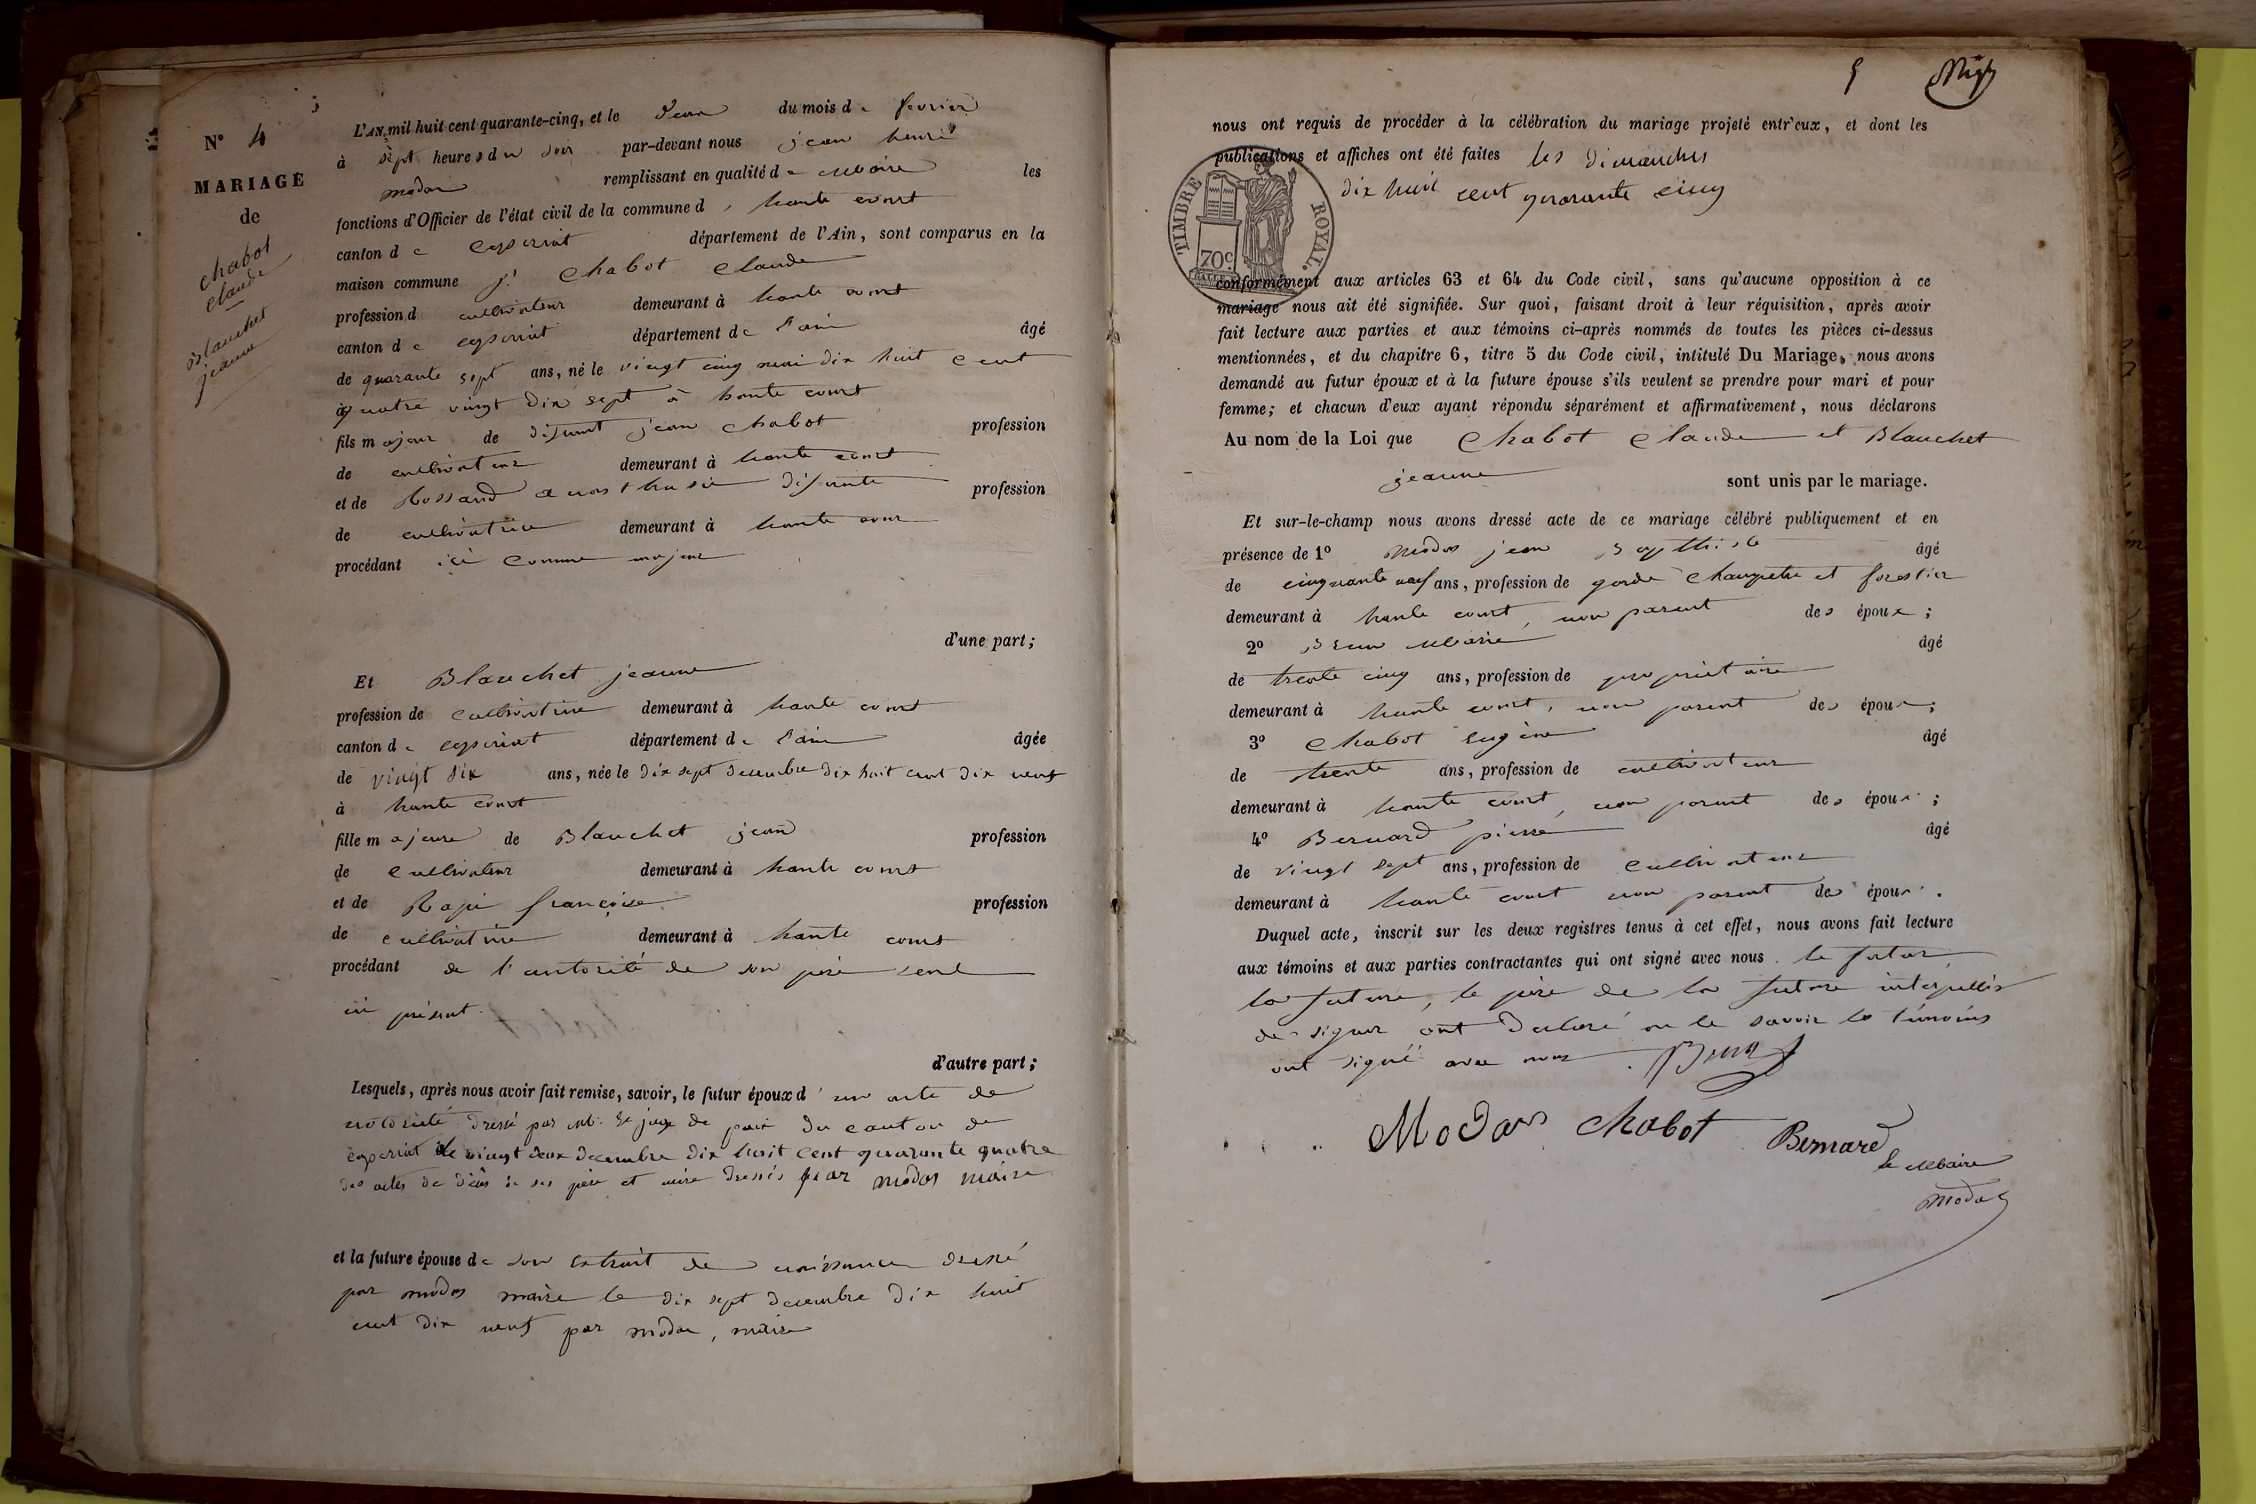 N° 4
MARIAGE
de
chabot
claude
Blanchet
jeanne
L'AN mil huit cent quarante-cinq, et le deux du mois de fevrier
à sept heures du soir par-devant nous jean henri
modas remplissant en qualité de Maire les
fonctions d'Officier de l'état civil de la commune d haute court
canton de ceyseriat département de l'Ain, sont comparus en la
maison commune Chabot Claude
profession d cultivateur demeurant à haute court
canton de ceyseriat département de l'ain âgé
de quarante sept ans, né le vingt cinq mai dix huit cent
quatre vingt dix sept à haute court
fils majeur de défunt jean chabot profession
de cultivateur demeurant à haute court
et de défunte profession
de cultivatrice demeurant à haute cour
procédant ici comme majeur
d'une part;
Et Blanchet jeanne
profession de cultivatrice demeurant à haute court
canton de ceyseriat département de l'ain âgée
de vingt six ans, née le dix sept decembre dix huit cent dix neuf
à haute court
fille majeure de Blanchet jean profession
de cultivateur demeurant à haute court
et de françoise profession
de cultivatrice demeurant à haute court
procédant de l'autorité de son père seul
ici présent
d'autre part;
Lesquels, après nous avoir fait remise, savoir, le futur époux d'un acte de
notorieté dressé par mr. le juge de paix du canton de
ceyseriat le vingt deux decembre dix huit cent quarante quatre
des actes de décès de ses père et mère dressés par modas maire
et la future épouse de son extrait de naissance dressé
par modas maire le dix sept decembre dix huit
cent dix neuf par modas, maire
5
nous ont requis de procéder à la célébration du mariage projeté entr'eux, et dont les
publications et affiches ont été faites les dimanches
dix huit cent quarante cinq
TIMBRE ROYAL.
70c
conformément aux articles 63 et 64 du Code civil, sans qu'aucune opposition à ce
mariage nous ait été signifiée. Sur quoi, faisant droit à leur réquisition, après avoir
fait lecture aux parties et aux témoins ci-après nommés de toutes les pièces ci-dessus
mentionnées, et du chapitre 6, titre 5 du Code civil, intitulé Du Mariage, nous avons
demandé au futur époux et à la future épouse s'ils veulent se prendre pour mari et pour
femme; et chacun d'eux ayant répondu séparément et affirmativement, nous déclarons
Au nom de la Loi que Chabot Claude et Blanchet
jeanne sont unis par le mariage.
Et sur-le-champ nous avons dressé acte de ce mariage célébré publiquement et en
présence de 1° modas jean Baptiste âgé
de cinquante neuf ans, profession de garde champetre et forestier
demeurant à haute court, non parent des époux;
2° Brun Marie âgé
de trente cinq ans, profession de propriétaire
demeurant à haute court, non parent des époux;
3° Chabot Eugène âgé
de trente ans, profession de cultivateur
demeurant à haute court, non parent des époux;
4° Bernard pierre âgé
de vingt sept ans, profession de cultivateur
demeurant à haute court non parent des époux.
Duquel acte, inscrit sur les deux registres tenus à cet effet, nous avons fait lecture
aux témoins et aux parties contractantes qui ont signé avec nous. le futur
la future, le père de la future interpellés
de signer ont declaré ne le savoir les témoins
ont signé avec nous Brun
Modas Chabot Bernard
le Maire
modas